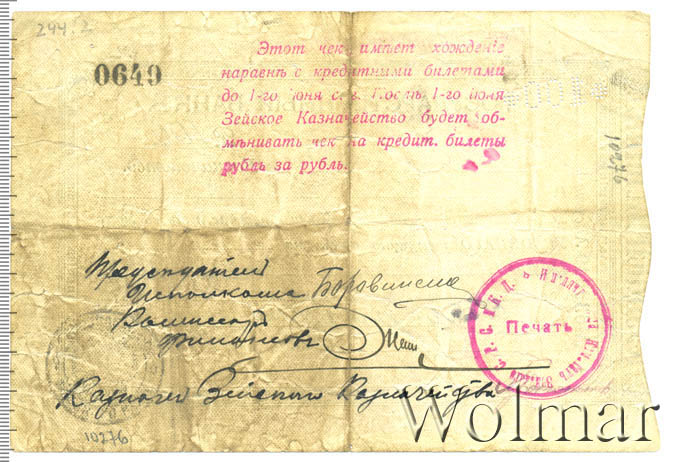 244.2
0649
Этот чек имѣет хожденіе
наравнѣ с кредитными билетами
до 1-го іюня с. г. Послѣ 1-го іюня
Зейское Казначейство будет об-
мѣнивать чек на кредит. билеты
рубль за рубль.
10276
Председатель
Исполкома
Комиссар
финансов
Казначей Зейского Казначейства
Печать
10276
Wolmar